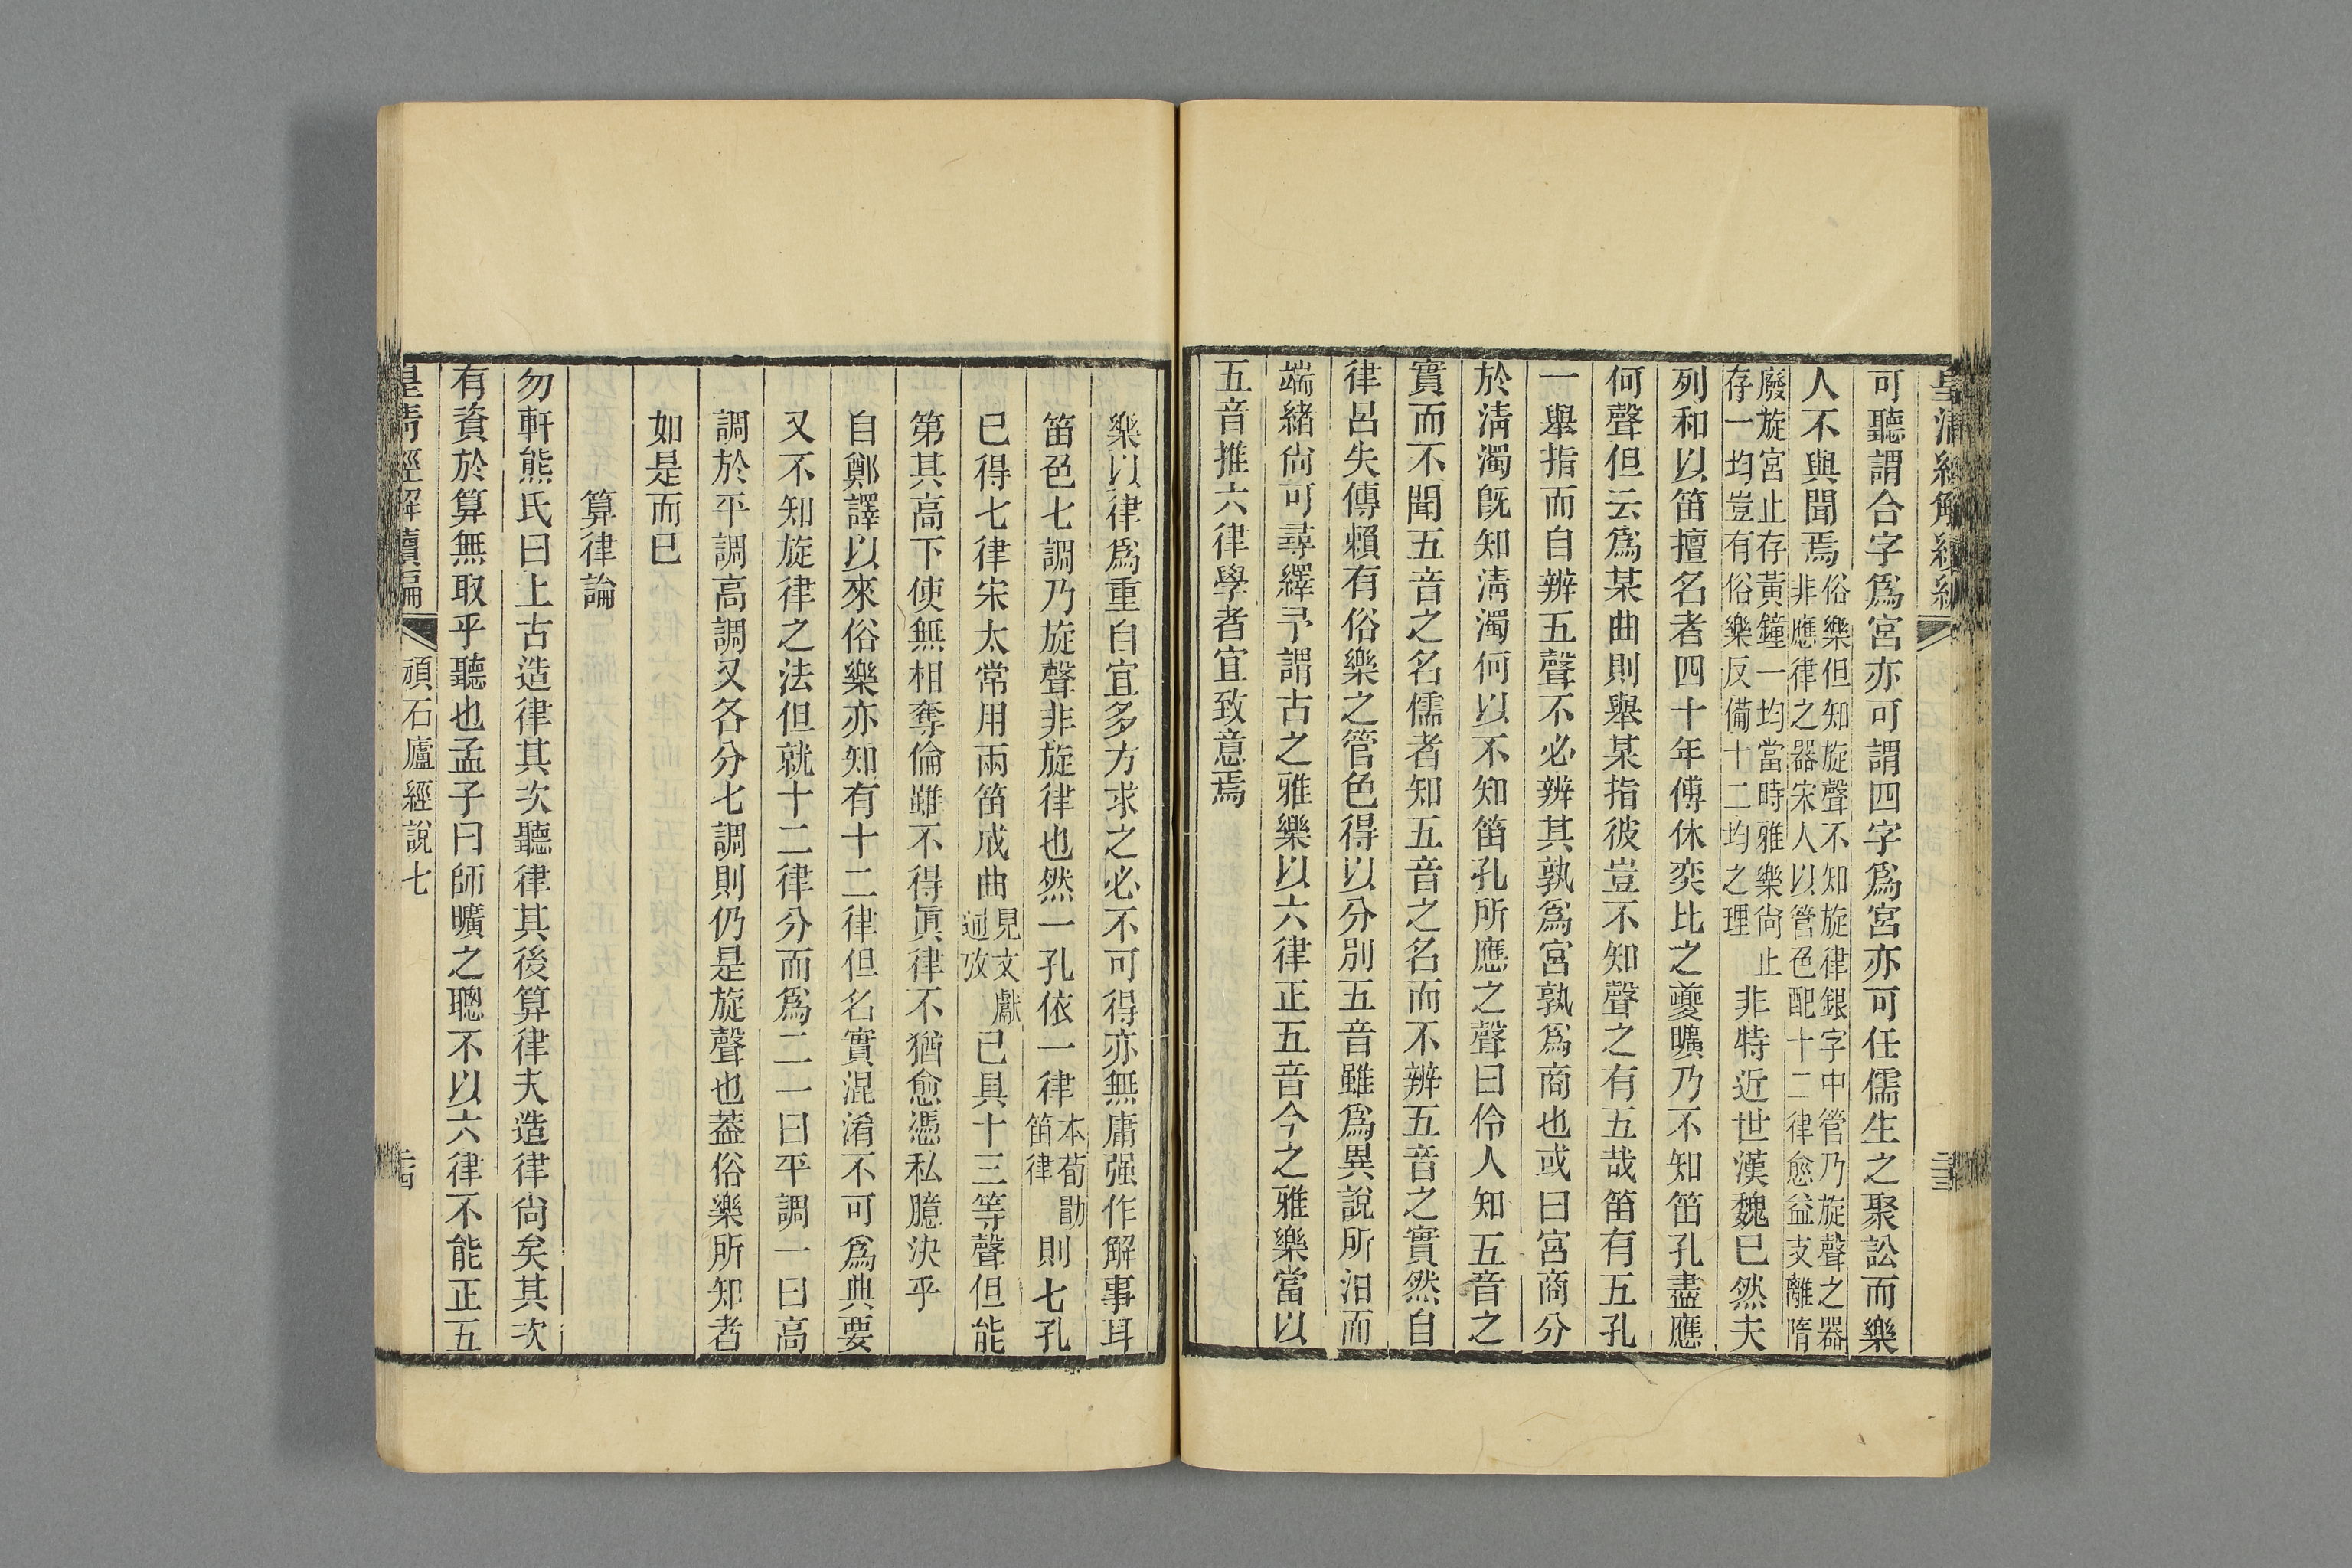 可聽謂合字爲宮亦可謂四字爲宮亦可任儒生之聚訟而樂
人不與聞焉俗樂但知旋聲不知旋律銀字中管乃旋聲之器
非應律之器宋人以管色配十二律愈益支離隋
廢旋宮止存黃鐘一均當時雅樂尙止
存一均豈有俗樂反備十二均之理非特近世漢魏已然夫
列和以笛擅名者四十年傅休奕比之夔曠乃不知笛孔盡應
何聲但云爲某曲則舉某指彼豈不知聲之有五哉笛有五孔
一舉指而自辨五聲不必辨其孰爲宮孰爲商也或曰宮商分
於淸濁旣知淸濁何以不知笛孔所應之聲曰伶人知五音之
實而不聞五音之名儒者知五音之名而不辨五音之實然自
律呂失傳賴有俗樂之管色得以分別五音雖爲異說所汨而
端緖尙可尋繹予謂古之雅樂以六律正五音今之雅樂當以
五音推六律學者宜致意焉
樂以律爲重自宜多方求之必不可得亦無庸强作解事耳
笛色七調乃旋聲非旋律也然一孔依一律本荀勖
笛律則七孔
已得七律宋太常用兩笛成曲見文獻
通攷已具十三等聲但能
第其高下使無相奪倫雖不得眞律不猶愈憑私臆決乎
自鄭譯以來俗樂亦知有十二律但名實混淆不可爲典要
又不知旋律之法但就十二律分而爲二一曰平調一曰高
調於平調高調又各分七調則仍是旋聲也葢俗樂所知者
如是而已
算律論
勿軒熊氏曰上古造律其次聽律其後算律夫造律尙矣其次
有資於算無取乎聽也孟子曰師曠之聰不以六律不能正五
皇淸經解續編
頑石廬經說七